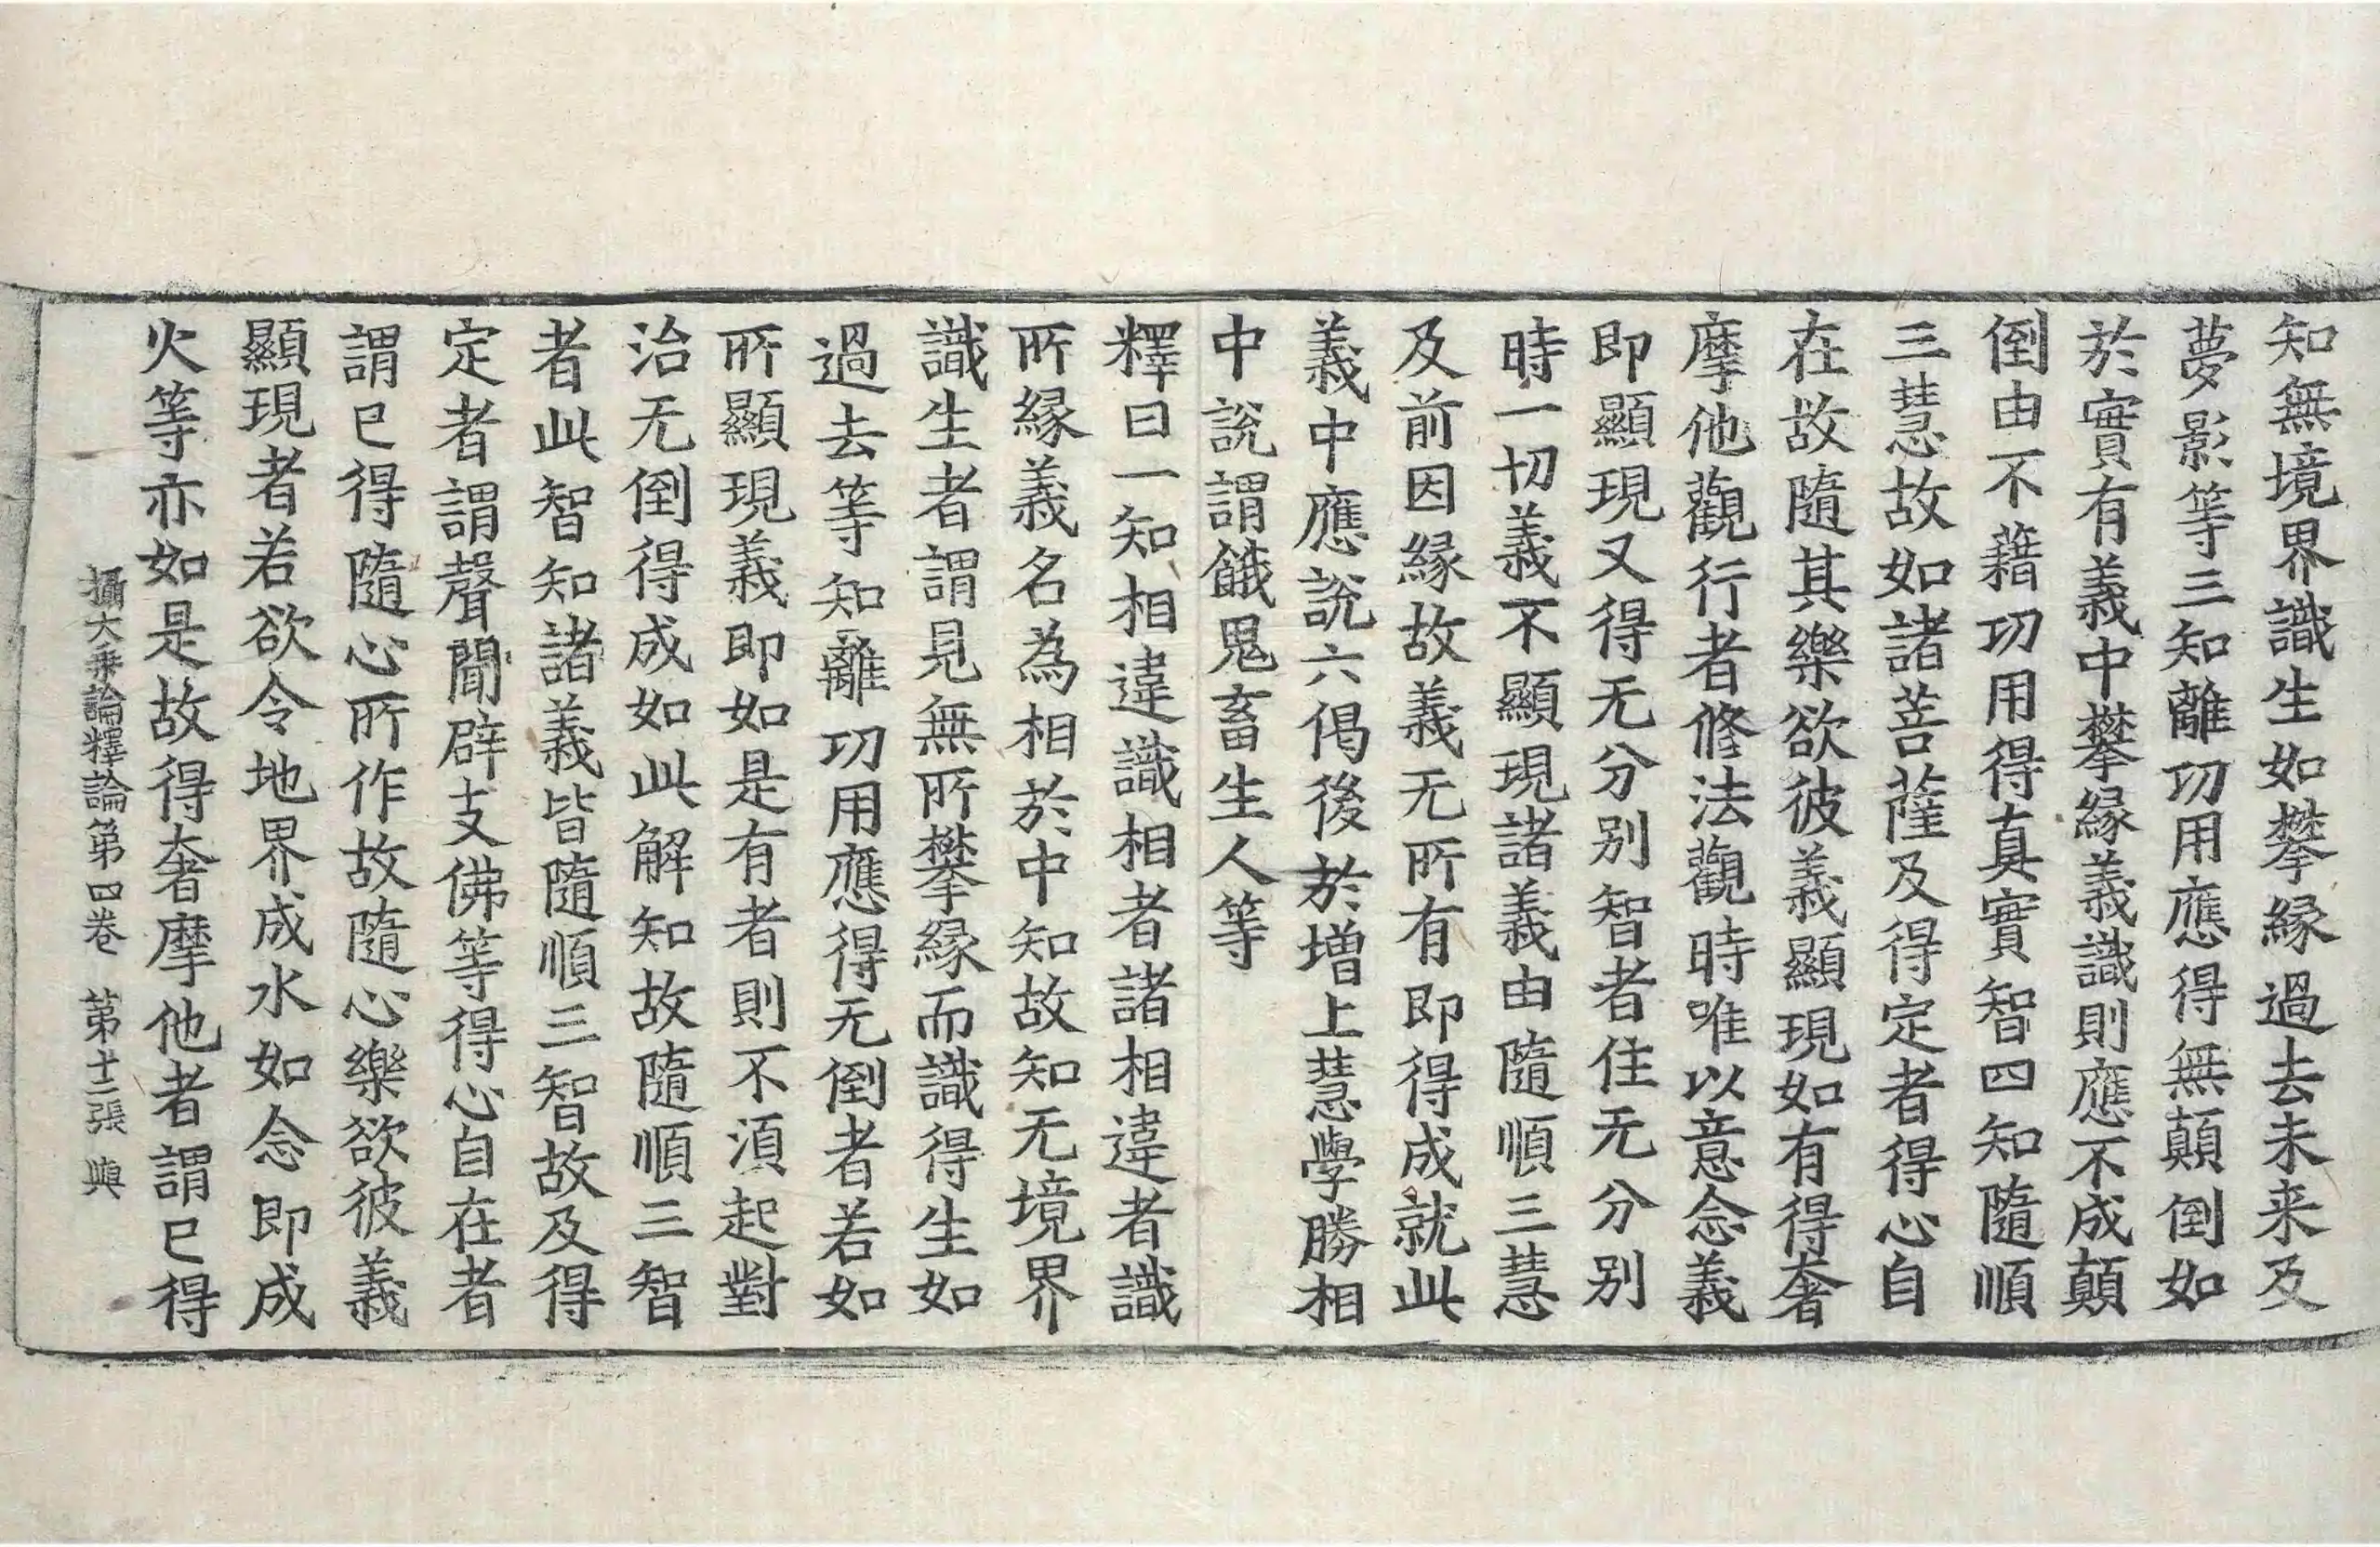 知無境界識生如攀緣過去未来及
夢影等三知離功用應得無顛倒如
於實有義中攀緣義識則應不成顛
倒由不藉功用得真實智四知隨順
三慧故如諸菩薩及得定者得心自
在故隨其樂欲彼義顯現如有得奢
摩他觀行者修法觀時唯以意念義
即顯現又得无分別智者住无分別
時一切義不顯現諸義由隨順三慧
及前因緣故義无所有即得成就此
義中應說六偈後於增上慧學勝相
中說謂餓鬼畜生人等
釋曰一知相違識相者諸相違者識
所緣義名為相於中知故知无境界
識生者謂見無所攀緣而識得生如
過去等知離功用應得无倒者若如
所顯現義即如是有者則不湏起對
治无倒得成如此解知故隨順三智
者此智知諸義皆隨順三智故及得
定者謂聲聞辟支佛等得心自在者
謂已得隨心所作故隨心樂欲彼義
顯現者若欲令地界成水如念即成
火等亦如是故得奢摩他者謂已得
攝大乘論釋論第四卷 第十二張 興